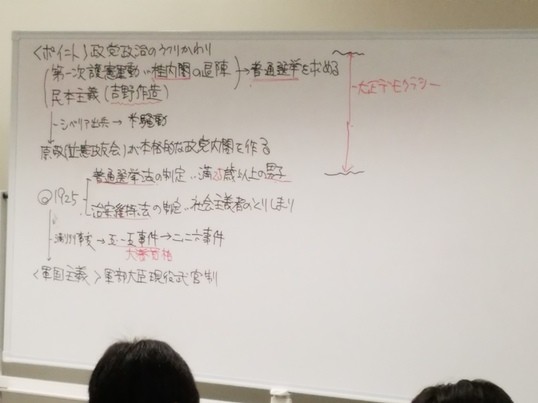 〈ポイント〉政党政治のうつりかわり
第一次護憲運動…桂内閣の退陣
民本主義(吉野作造)
→普通選挙を求める
大正デモクラシー
シベリア出兵→米騒動
原敬(立憲政友会)が本格的な政党内閣を作る
1925
普通選挙法の制定…満25歳以上の男子
治安維持法の制定…社会主義者のとりしまり
満州事変→五・一五事件→二・二六事件
犬養首相
〈軍国主義〉軍部大臣現役武官制